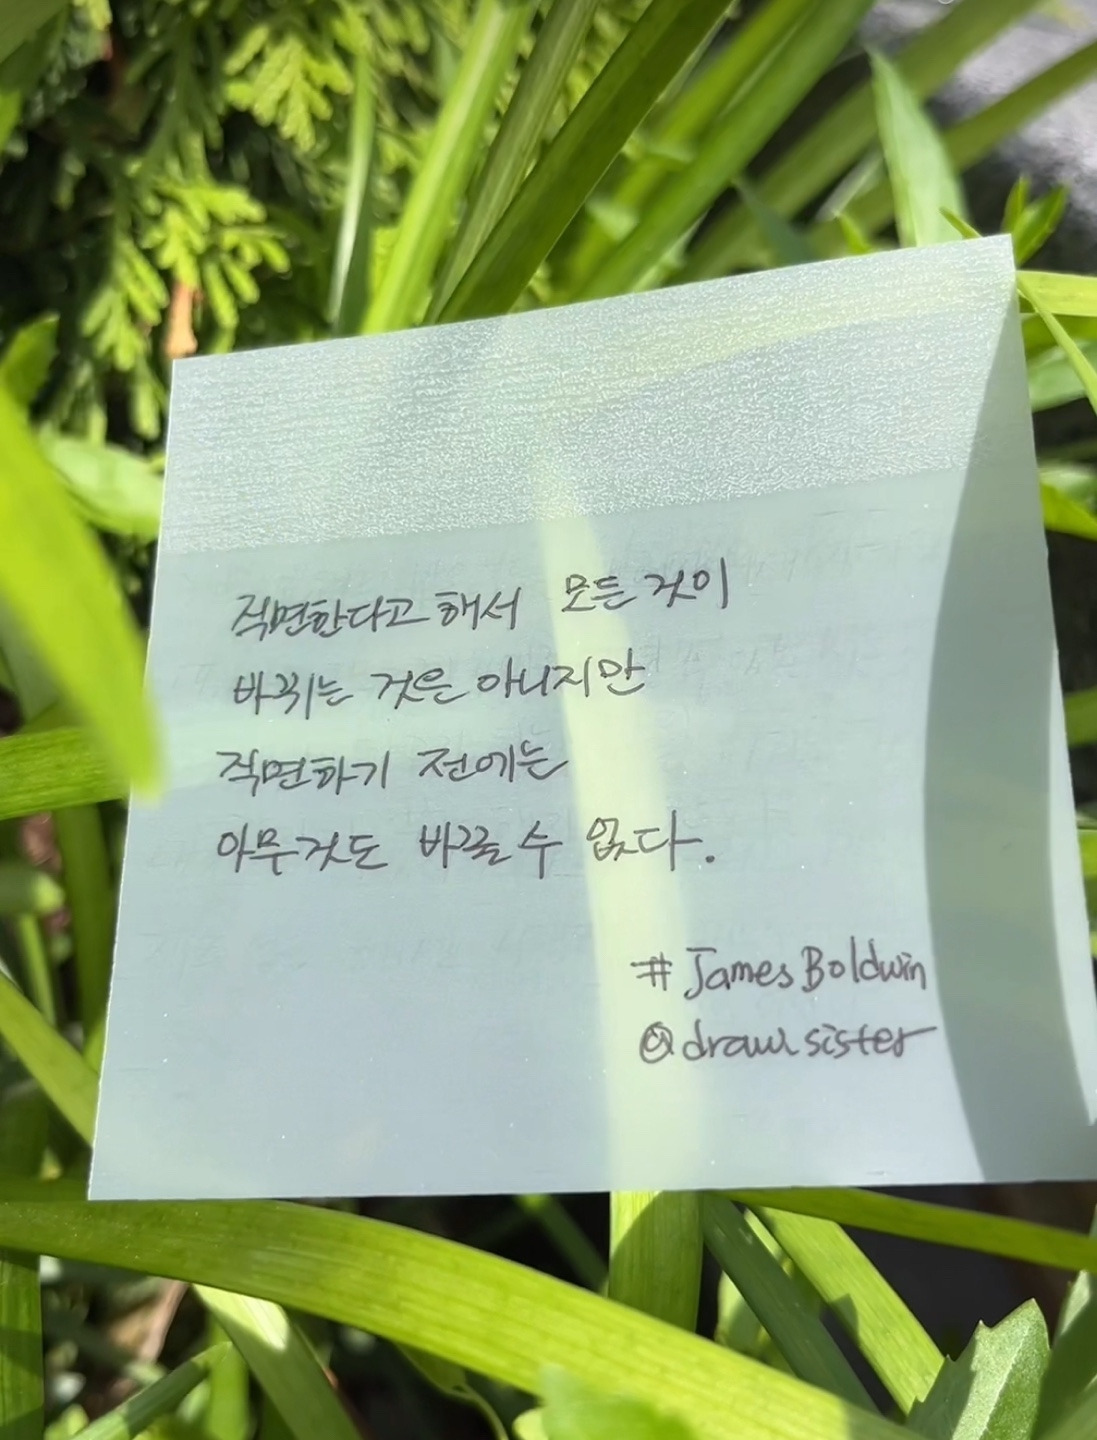 직면한다고 해서 모든 것이
바뀌는 것은 아니지만
직면하기 전에는
아무것도 바꿀 수 없다.
# James Boldwin
@drawsister